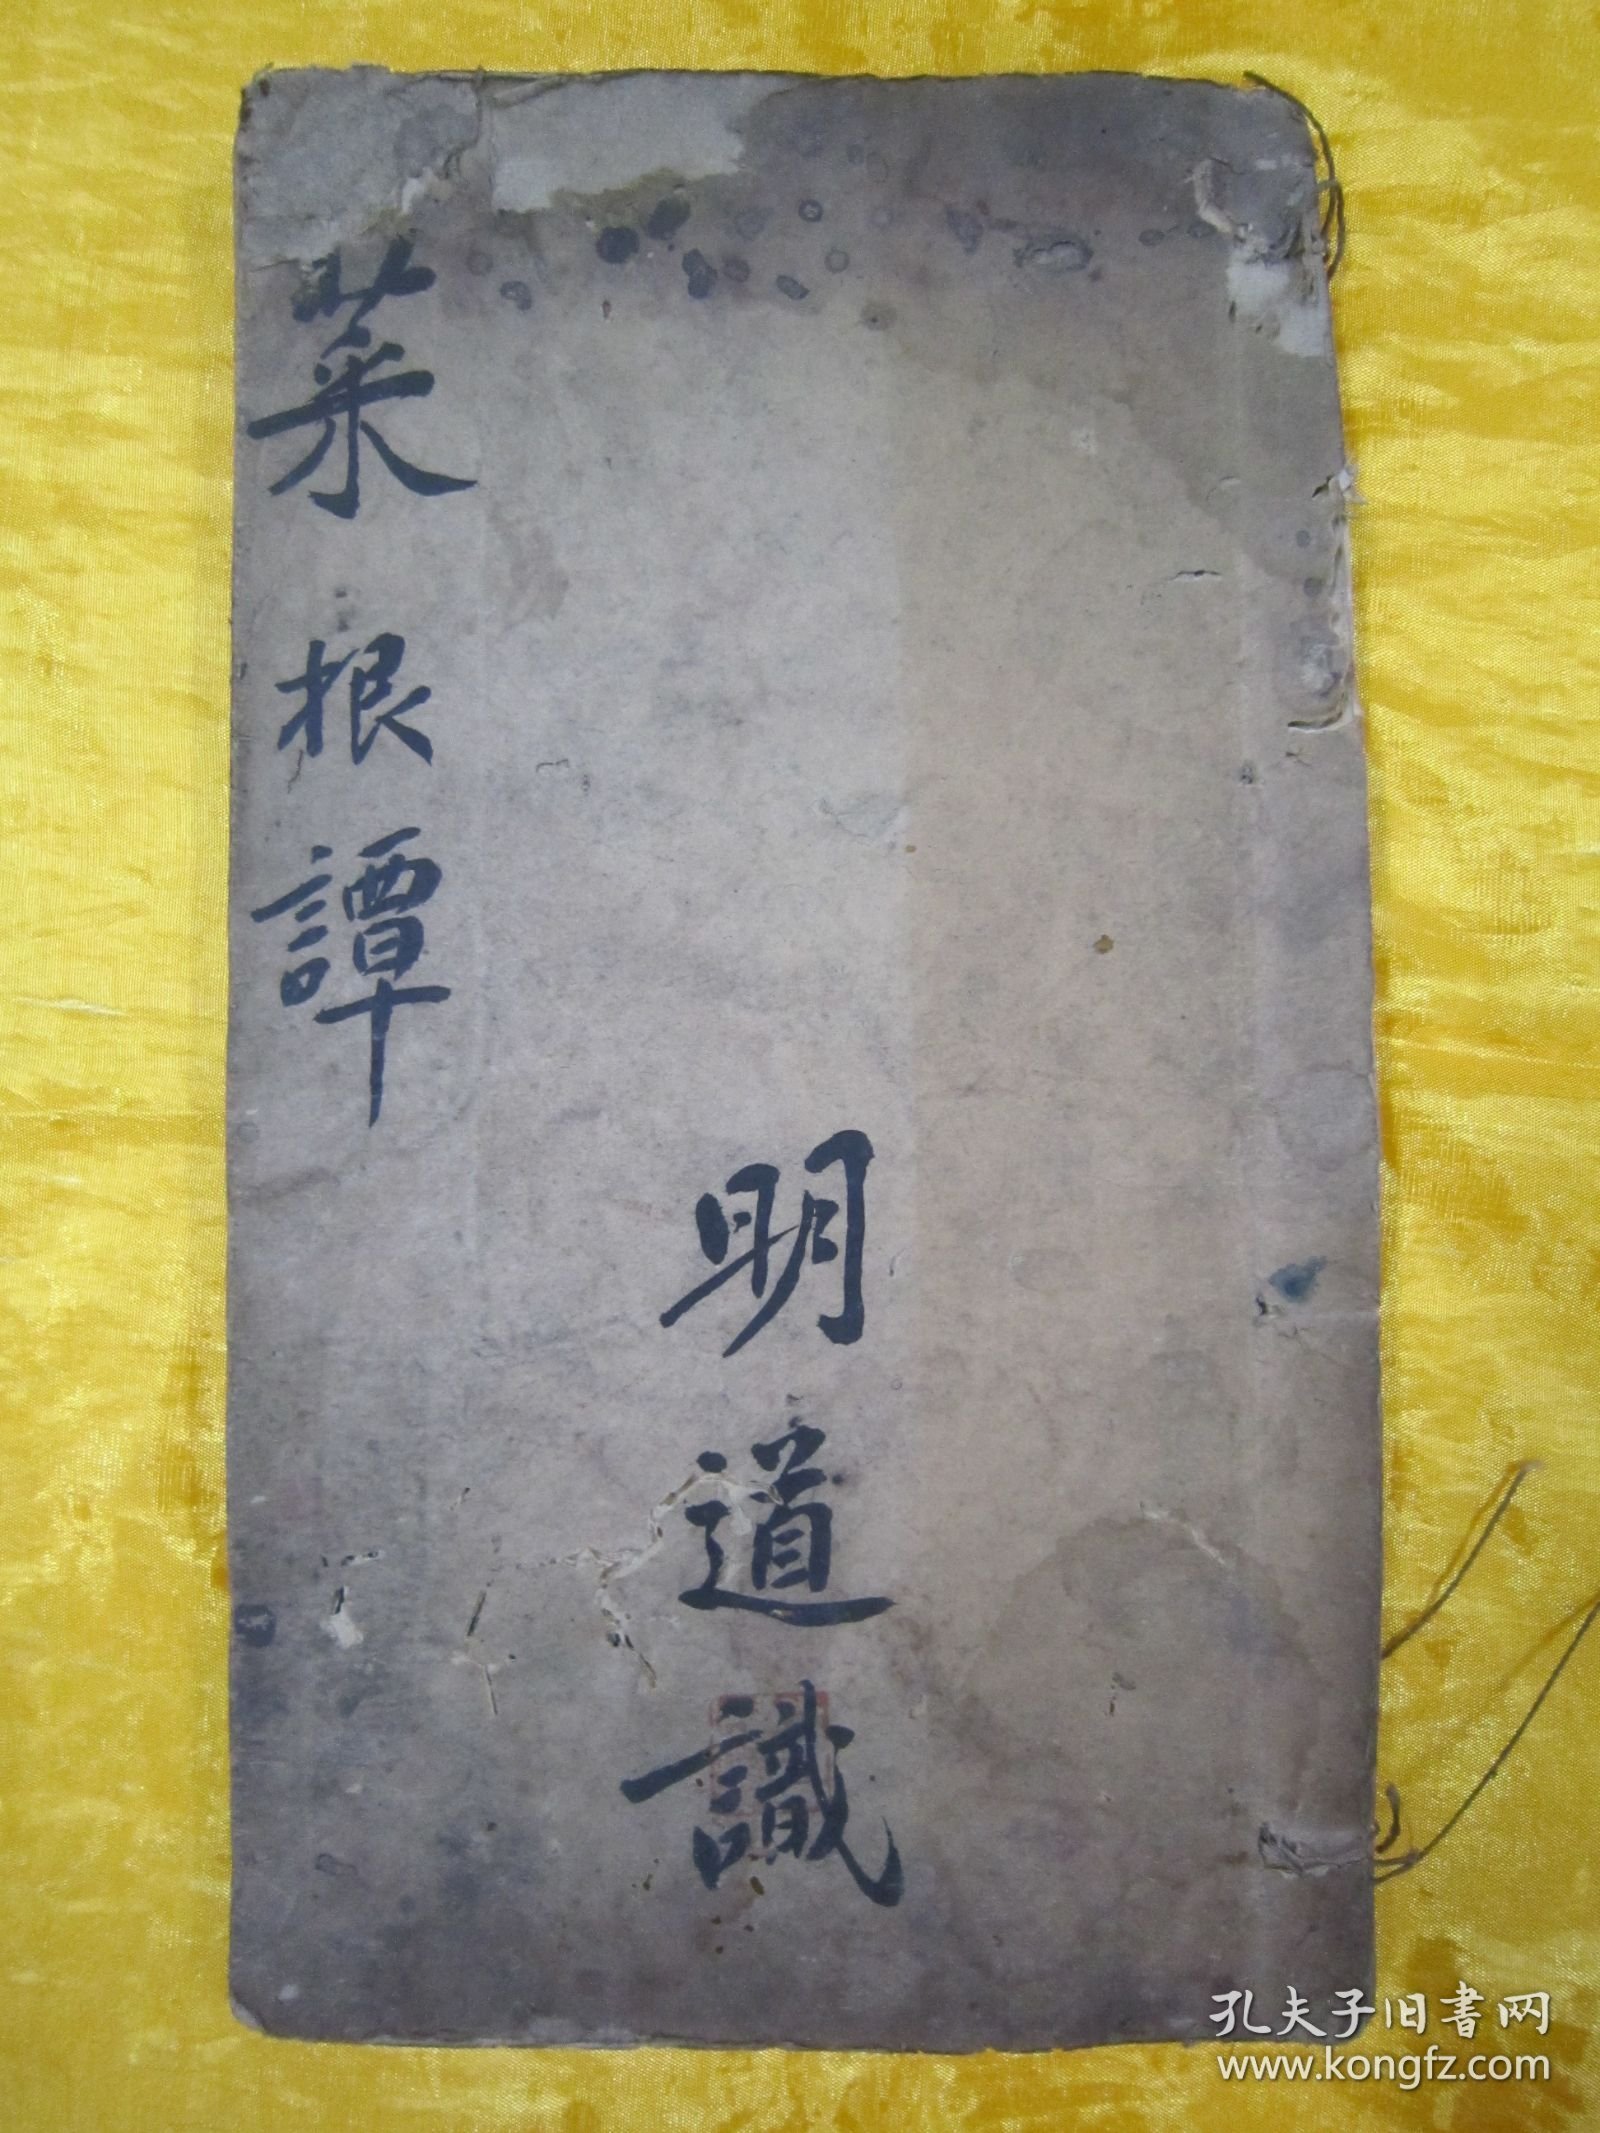 菜根譚
明道識
孔夫子旧书网
www.kongfz.com